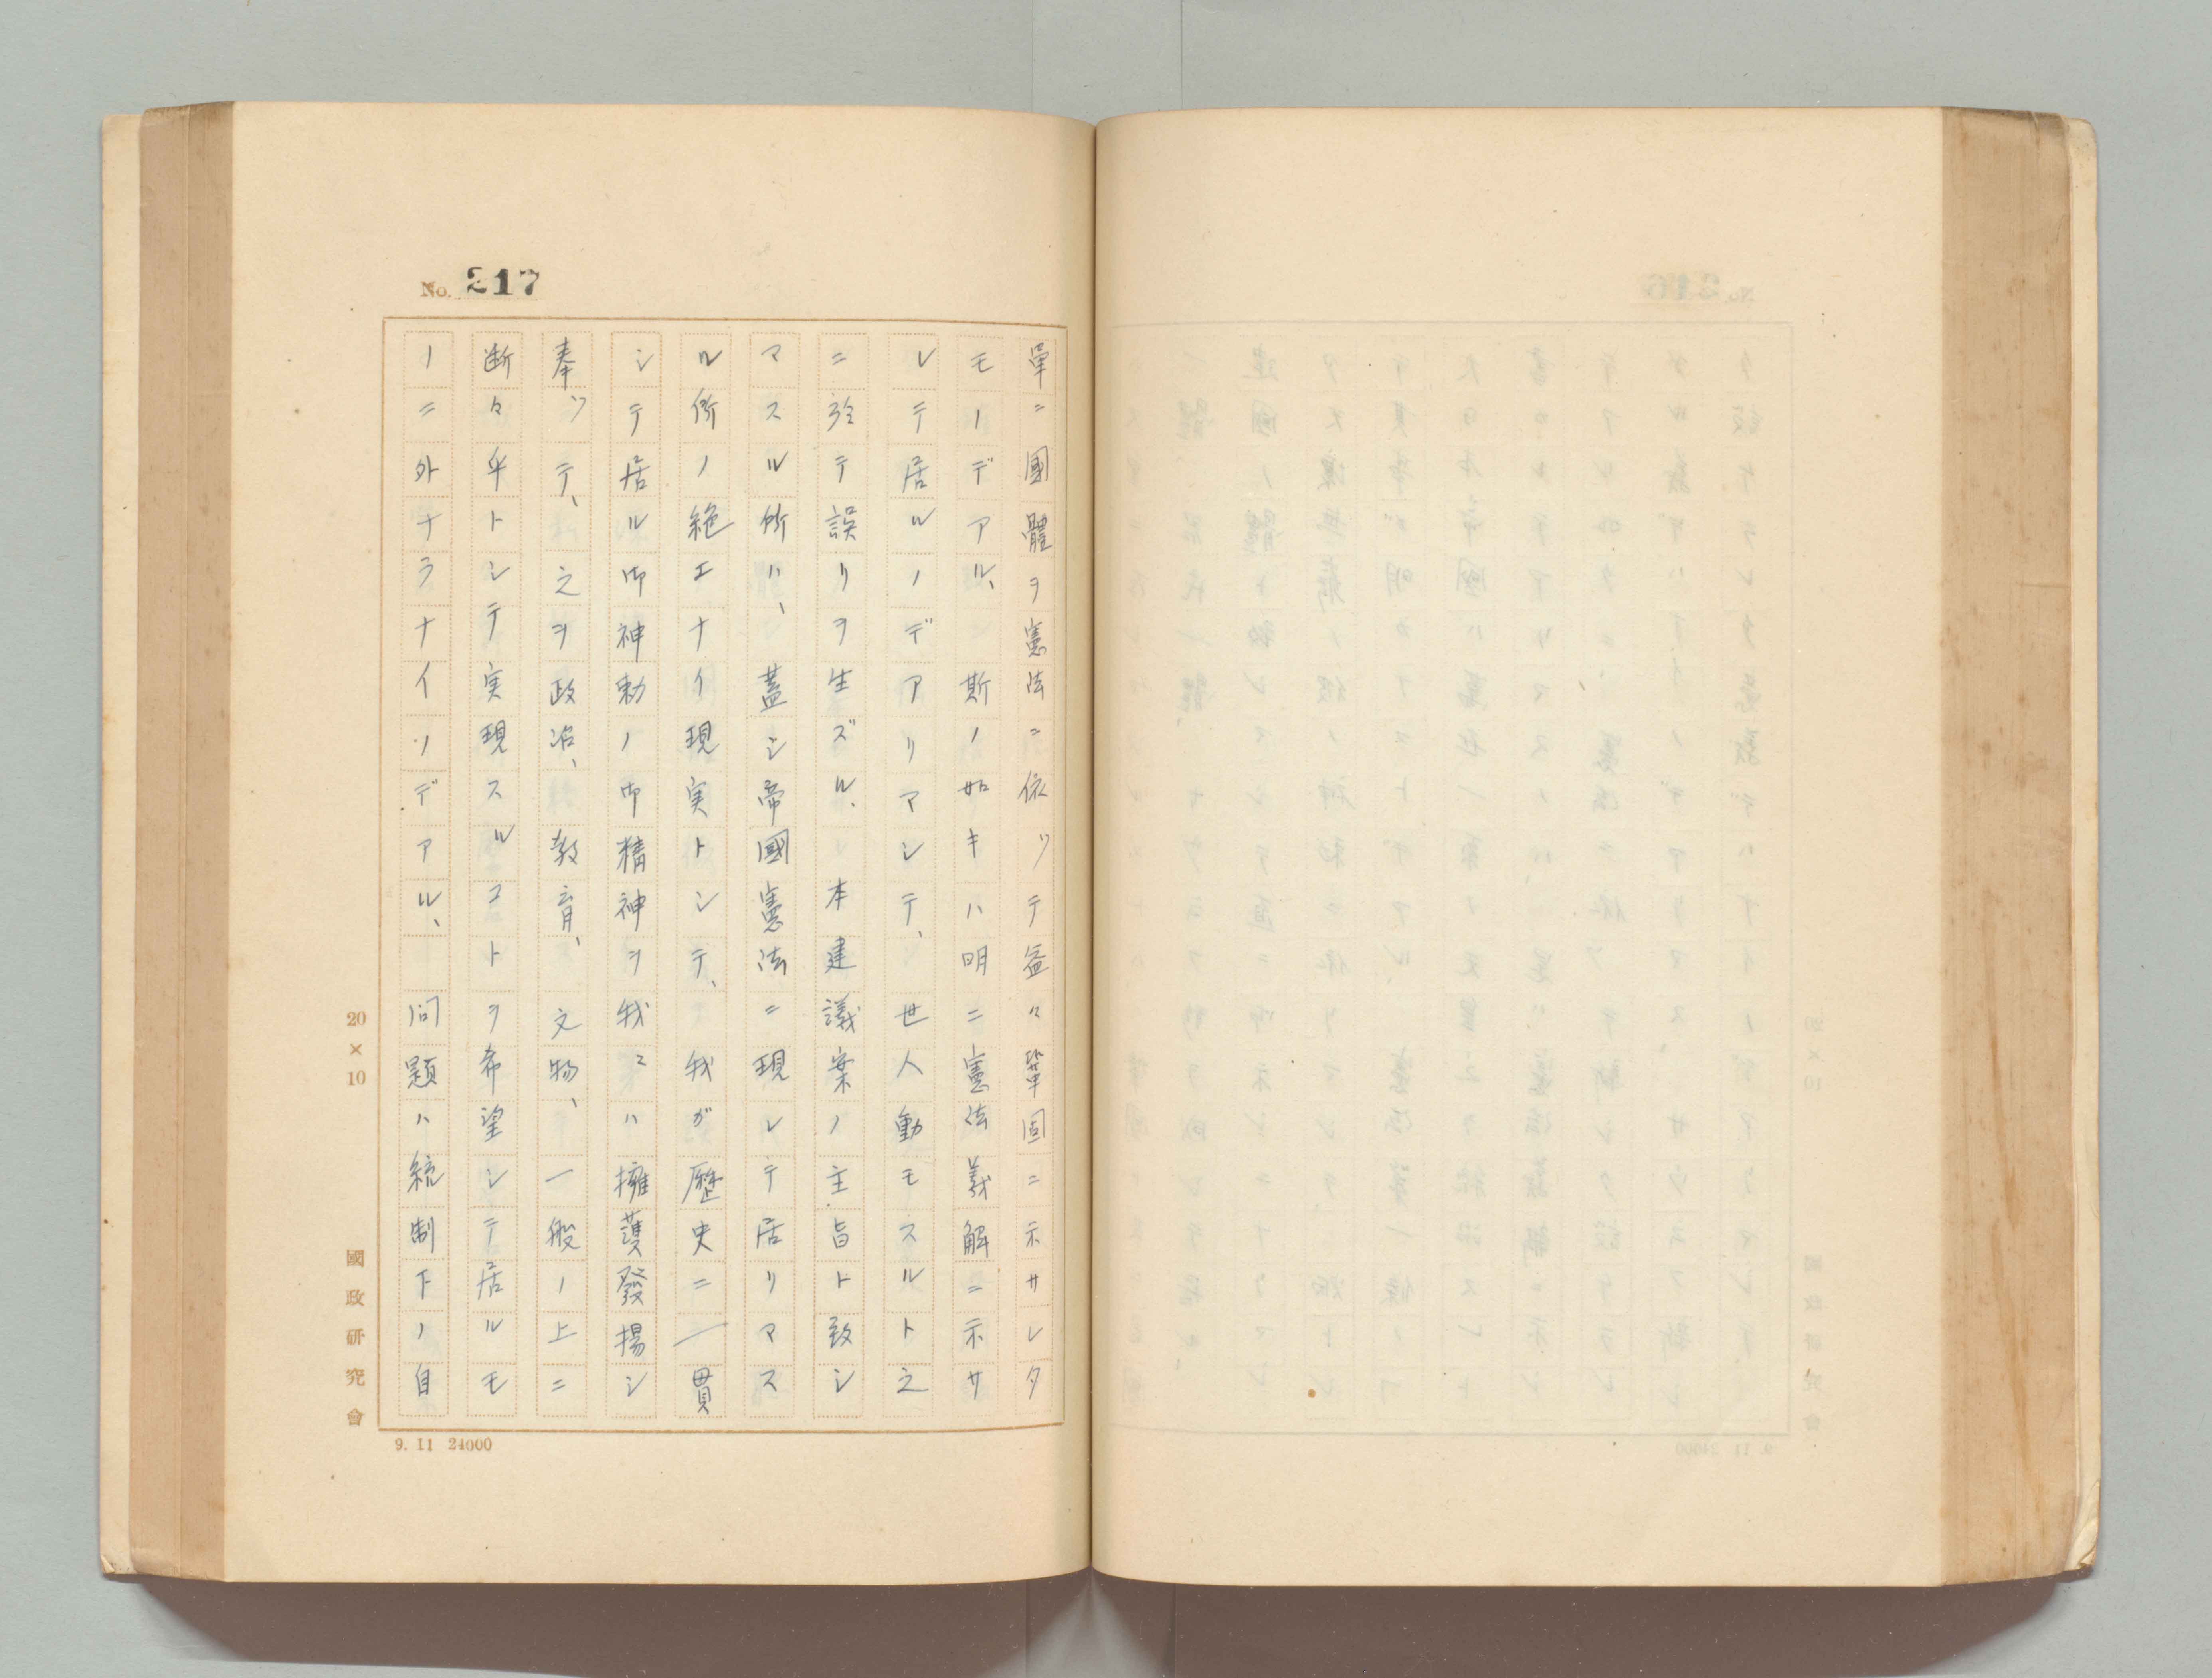 No. 217
單ニ國體ヲ憲法ニ依ツテ益々鞏固ニ示サレタ
モノデアル、斯ノ如キハ明ニ憲法義解ニ示サ
レテ居ルノデアリマシテ、世人動モスルト之
ニ於テ誤リヲ生ズル、本建議案ノ主旨ト致シ
マスル所ハ、蓋シ帝國憲法ニ現レテ居リマス
ル所ノ絶エナイ現実トシテ、我ガ歴史ニ一貫
シテ居ル御神勅ノ御精神ヲ我々ハ擁護發揚シ
奉ツテ、之ヲ政治、教育、文物、一般ノ上ニ
断々乎トシテ実現スルコトヲ希望シテ居ルモ
ノニ外ナラナイノデアル、問題ハ統制下ノ自
20×10
國政研究會
9. 11 24000